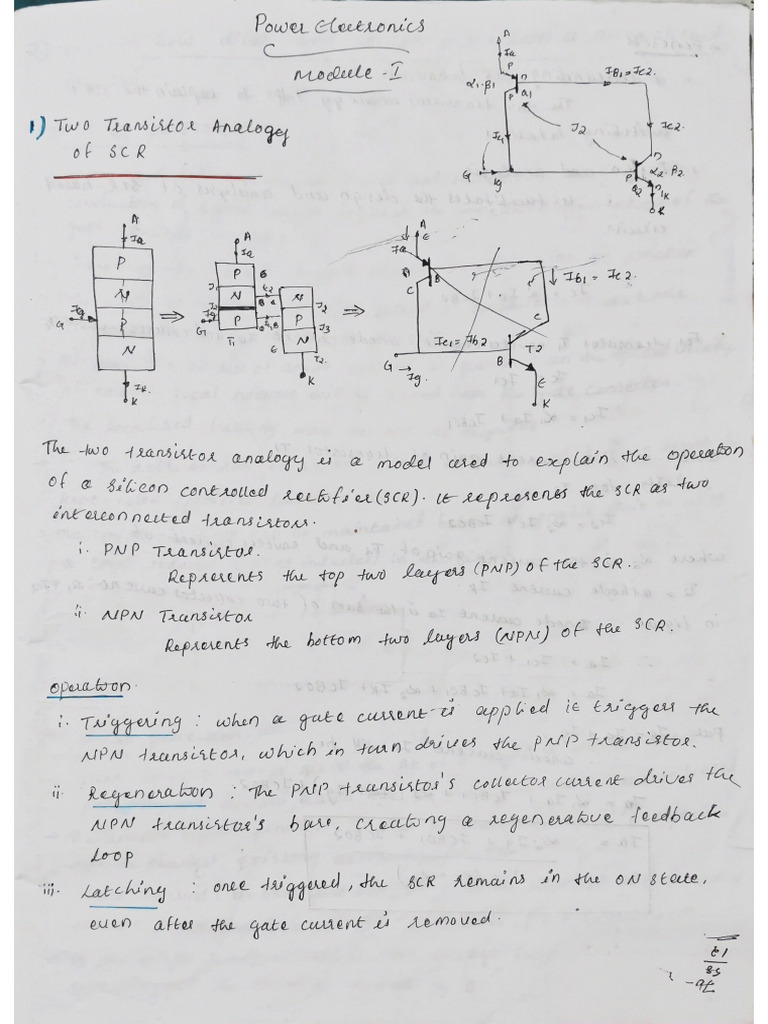 Power Electronics
Module - I
1) Two Transistor Analogy
of SCR
A
Ia
P
n
α1·β1
P
Q1
IB1 = Ic2
Ic1
J2
Ic2
n
G
Ig
P
α2·β2
Q2
n
Ik
K
A
Ia
P
N
P
N
Ig
G
Ik
K
⇒
A
Ia
P
N
P
J1
G
T1
N
P
N
J2
J3
T2
K
⇒
A
Ia
E
B
C
IB1 = Ic2
C
Ic1 = Ib2
T2
B
G
Ig
E
K
The two transistor analogy is a model used to explain the operation
of a silicon controlled rectifier (SCR). It represents the SCR as two
interconnected transistors.
i. PNP Transistor.
Represents the top two layers (PNP) of the SCR.
ii. NPN Transistor
Represents the bottom two layers (NPN) of the SCR.
Operation.
i. Triggering : when a gate current is applied it triggers the
NPN transistor, which in turn drives the PNP transistor.
ii. Regeneration : The PNP transistor's collector current drives the
NPN transistor's base, creating a regenerative feedback
loop
iii. Latching : once triggered, the SCR remains in the ON state,
even after the gate current is removed.